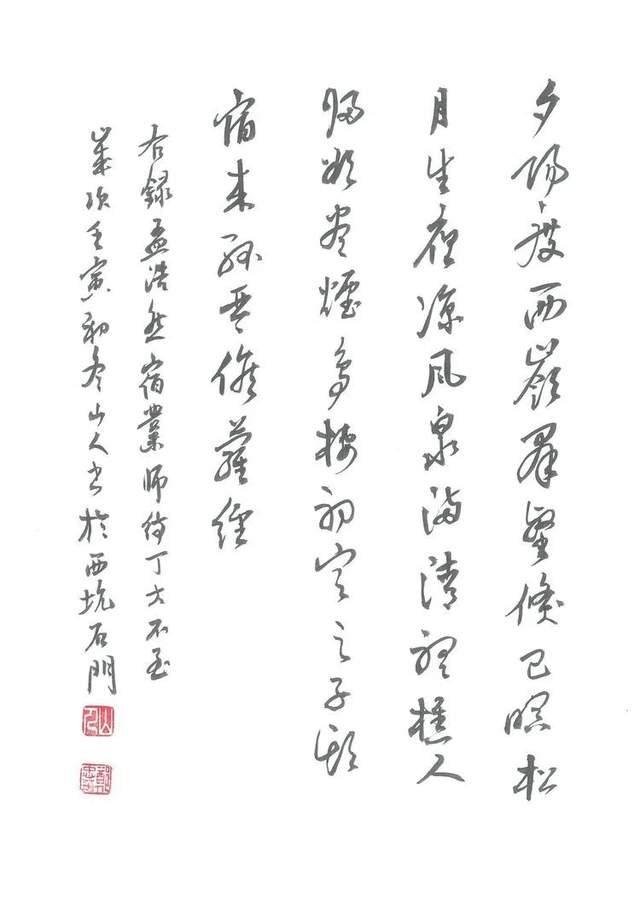 夕陽度西嶺羣壑倏已暝松
月生夜涼風泉滿清聽樵人
歸欲盡煙鳥棲初定之子期
宿來孤琴候蘿徑
右錄孟浩然宿業師待丁大不至
歲次壬寅初冬山人書於西坑石門
山人